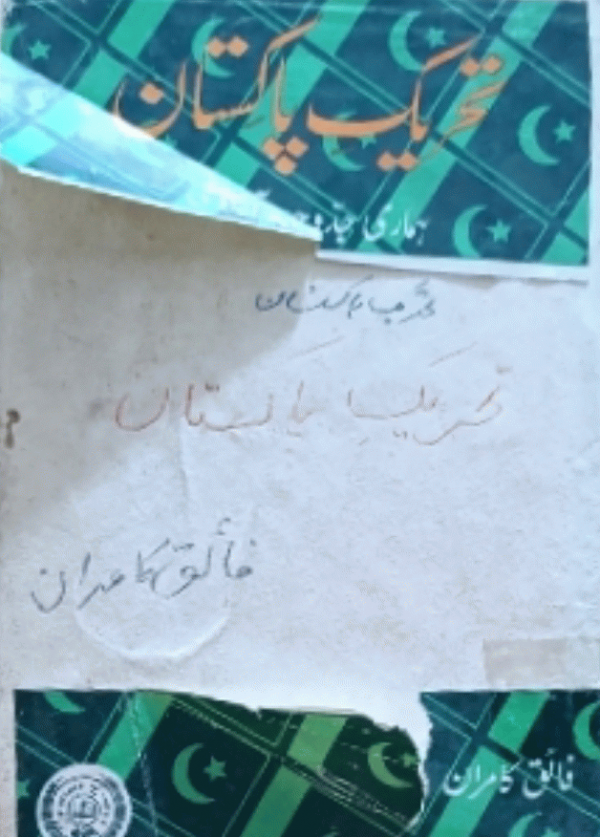 تحریک پاکستان
ہماری جدوجہد
تحریک پاکستان
تحریک پاکستان
فائق کامران
فائق کامران